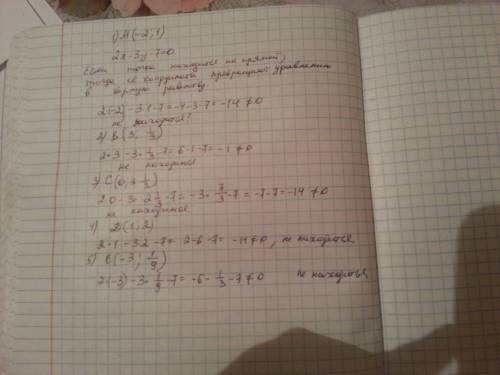 1) A(-2; 1)
2x-3y-7=0.
Если точка находится на прямой,
тогда её координаты превращают уравнение
в верную равность.
2·(-2)-3·1-7=-4-3-7=-14≠0
не находится!
2) B(3; 1/3)
2·3-3·1/3-7=6-1-7=-1≠0
не находится
3) C(0; 2 1/3)
2·0-3·2 1/3-7=-3·7/3-7=-7-7=-14≠0
не находится
4) D(1; 2)
2·1-3·2-7=2-6-7=-11≠0, не находится
5) E(-3; 1/9)
2·(-3)-3·1/9-7=-6-1/3-7≠0 не находится